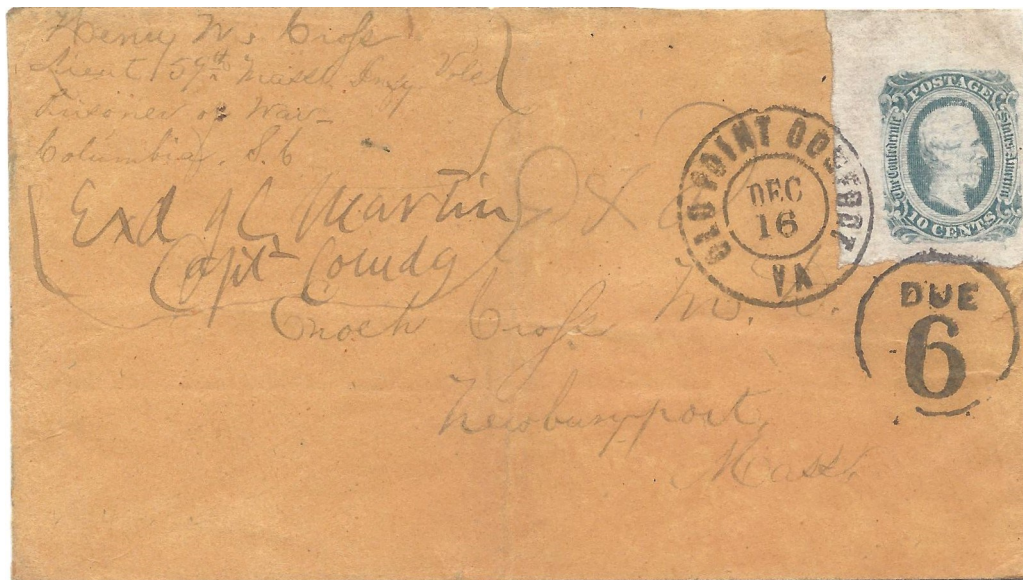 Henry W. Cross
Lieut 59th Mass Inf. Vols
Prisoner of War
Columbia, S.C
Exd J C Martin
Capt Comdg
OLD POINT COMFORT
DEC
16
VA
POSTAGE
The Confederate States America
10 CENTS
DUE
6
Enoch Cross M. D.
Newburyport,
Mass.